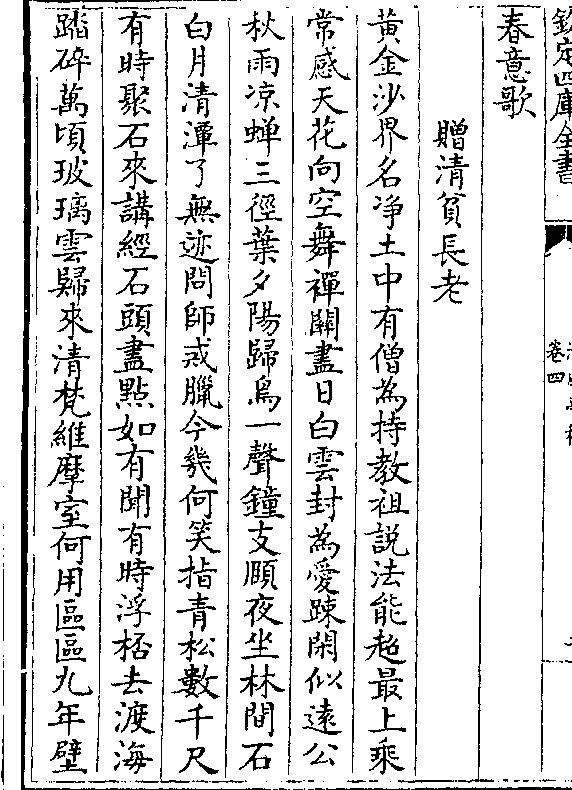 欽定四庫全書
卷四
春意歌
贈清貧長老
黃金沙界名净土中有僧為持教祖説法能超最上乘
常感天花向空舞禪關盡日白雲封為愛踈閑似遠公
秋雨凉蟬三徑葉夕陽歸鳥一聲鐘支頤夜坐林間石
白月清渾了無迹問師戒臘今幾何笑指青松數千尺
有時聚石來講經石頭盡點如有聞有時浮桮去渡海
踏碎萬頃玻璃雲歸來清梵維摩室何用區區九年壁